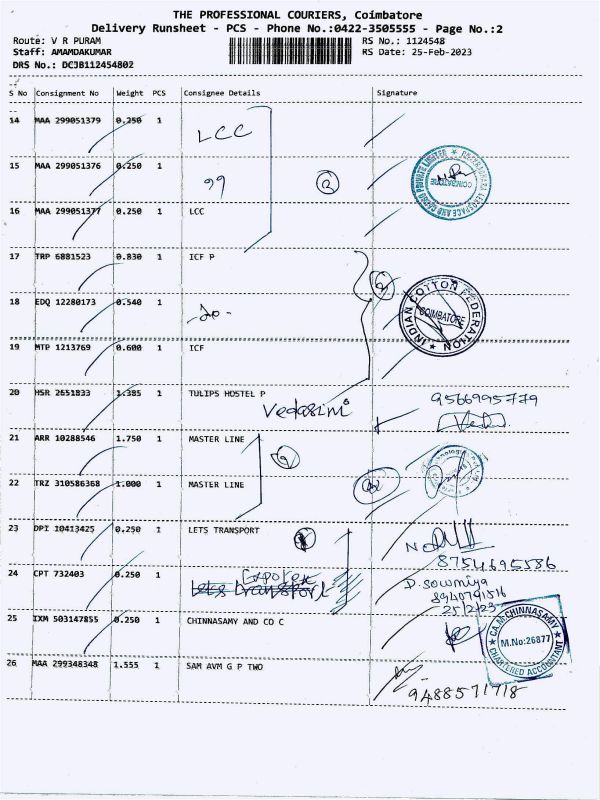 THE PROFESSIONAL COURIERS, Coimbatore
Delivery Runsheet - PCS - Phone No.:0422-3505555 - Page No.:2
Route: V R PURAM RS No.: 1124548
Staff: AMAMDAKUMAR RS Date: 25-Feb-2023
DRS No.: DCJB112454802
S No Consignment No Weight PCS Consignee Details Signature
14 MAA 299051379 0.250 1 LCC
15 MAA 299051376 0.250 1 99
16 MAA 299051377 0.250 1 LCC
COIMBATORE
17 TRP 6881523 0.830 1 ICF P
18 EDQ 12280173 0.540 1 -do-
INDIAN COTTON FEDERATION
COIMBATORE
19 MTP 1213769 0.600 1 ICF
20 HSR 2651833 1.385 1 TULIPS HOSTEL P 9566995779
21 ARR 10288546 1.750 1 MASTER LINE
22 TRZ 310586368 1.000 1 MASTER LINE
23 DPI 10413425 0.250 1 LETS TRANSPORT
8754695586
24 CPT 732403 0.250 1 Lets transport
D. Sowmiya
8940791516
25/2/23
25 IXM 503147855 0.250 1 CHINNASAMY AND CO C
CA.M.CHINNASAMY
M.No:26877
CHARTERED ACCOUNTANT
26 MAA 299348348 1.555 1 SAM AVM G P TWO
9488571718